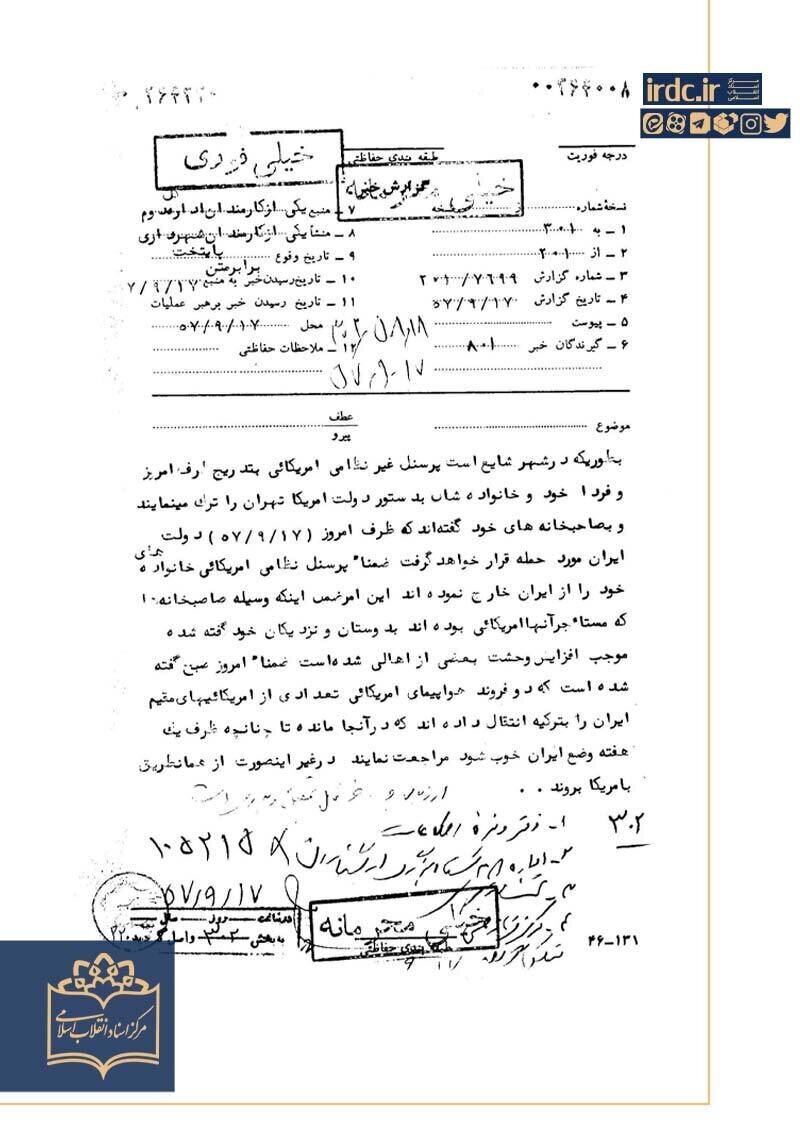 irdc.ir
مرکز اسناد انقلاب اسلامی
۰۰۲۶۴۰۰۸
درجه فوریت
طبقه بندی حفاظتی
خیلی فوری
گزارش خبر
خیلی محرمانه
نسخهٔ شماره
۱ ـ به ۳۰۱
۲ ـ از ۲۰۱
۳ ـ شماره گزارش ۲۰۱/۷۶۹۹
۴ ـ تاریخ گزارش ۵۷/۹/۱۷
۵ ـ پیوست
۶ ـ گیرندگان خبر ۸۰۱
۷ ـ منبع یکی از کارمندان اداره دوم
۸ ـ منشأ یکی از کارمندان شهرداری
پایتخت
۹ ـ تاریخ وقوع
برابر متن
۱۰ ـ تاریخ رسیدن خبر به منبع ۷/۹/۱۷
۱۱ ـ تاریخ رسیدن خبر برهبر عملیات
محل ۵۷/۹/۱۷
۱۲ ـ ملاحظات حفاظتی
موضوع
عطف
پیرو
بطوریکه در شهر شایع است پرسنل غیر نظامی امریکائی بتدریج ظرف امروز
و فردا خود و خانواده شان بدستور دولت امریکا تهران را ترک مینمایند
و بصاحبخانه های خود گفته‌اند که ظرف امروز (۵۷/۹/۱۷) دولت
ایران مورد حمله قرار خواهد گرفت ضمناً پرسنل نظامی امریکائی خانواده های
خود را از ایران خارج نموده اند این امر ضمن اینکه وسیله صاحبخانه ها
که مستأجر آنها امریکائی بوده اند بدوستان و نزدیکان خود گفته شده
موجب افزایش وحشت بعضی از اهالی شده‌است ضمناً امروز صبح گفته
شده است که دو فروند هواپیمای امریکائی تعدادی از امریکائیهای مقیم
ایران را بترکیه انتقال داده اند که در آنجا مانده تا چنانچه ظرف یک
هفته وضع ایران خوب شود مراجعت نمایند در غیر اینصورت از همانطریق
بامریکا بروند . .
۳۰۲
۱- دفتر ویژه اطلاعات
۱۰۵۲۱۵
۵۷/۹/۱۷
در ساعت روز سال
به بخش ۳۰۲ واصل گردید
خیلی محرمانه
طبقه بندی حفاظتی
۴۶-۱۳۱
مرکز اسناد انقلاب اسلامی